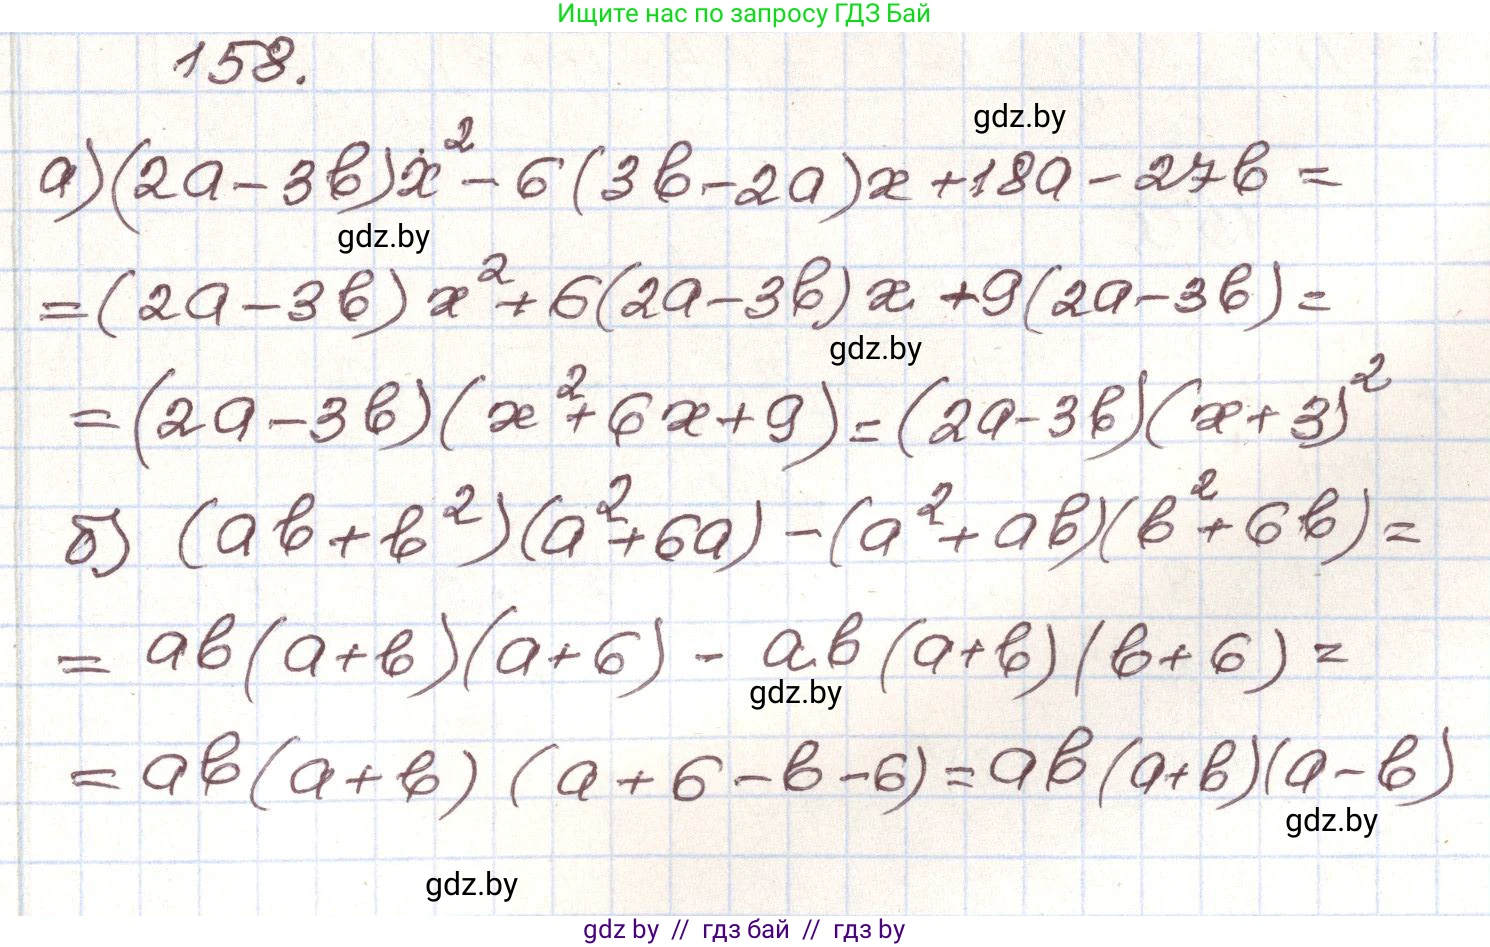 Ищите нас по запросу ГДЗ Бай
158.
gdz.by
а) (2a - 3b)x² - 6(3b - 2a)x + 18a - 27b =
gdz.by
= (2a - 3b)x² + 6(2a - 3b)x + 9(2a - 3b) =
gdz.by
= (2a - 3b)(x² + 6x + 9) = (2a - 3b)(x + 3)²
б) (ab + b²)(a² + 6a) - (a² + ab)(b² + 6b) =
= ab(a + b)(a + 6) - ab(a + b)(b + 6) =
gdz.by
= ab(a + b)(a + 6 - b - 6) = ab(a + b)(a - b)
gdz.by
gdz.by
gdz.by // гдз бай // гдз by